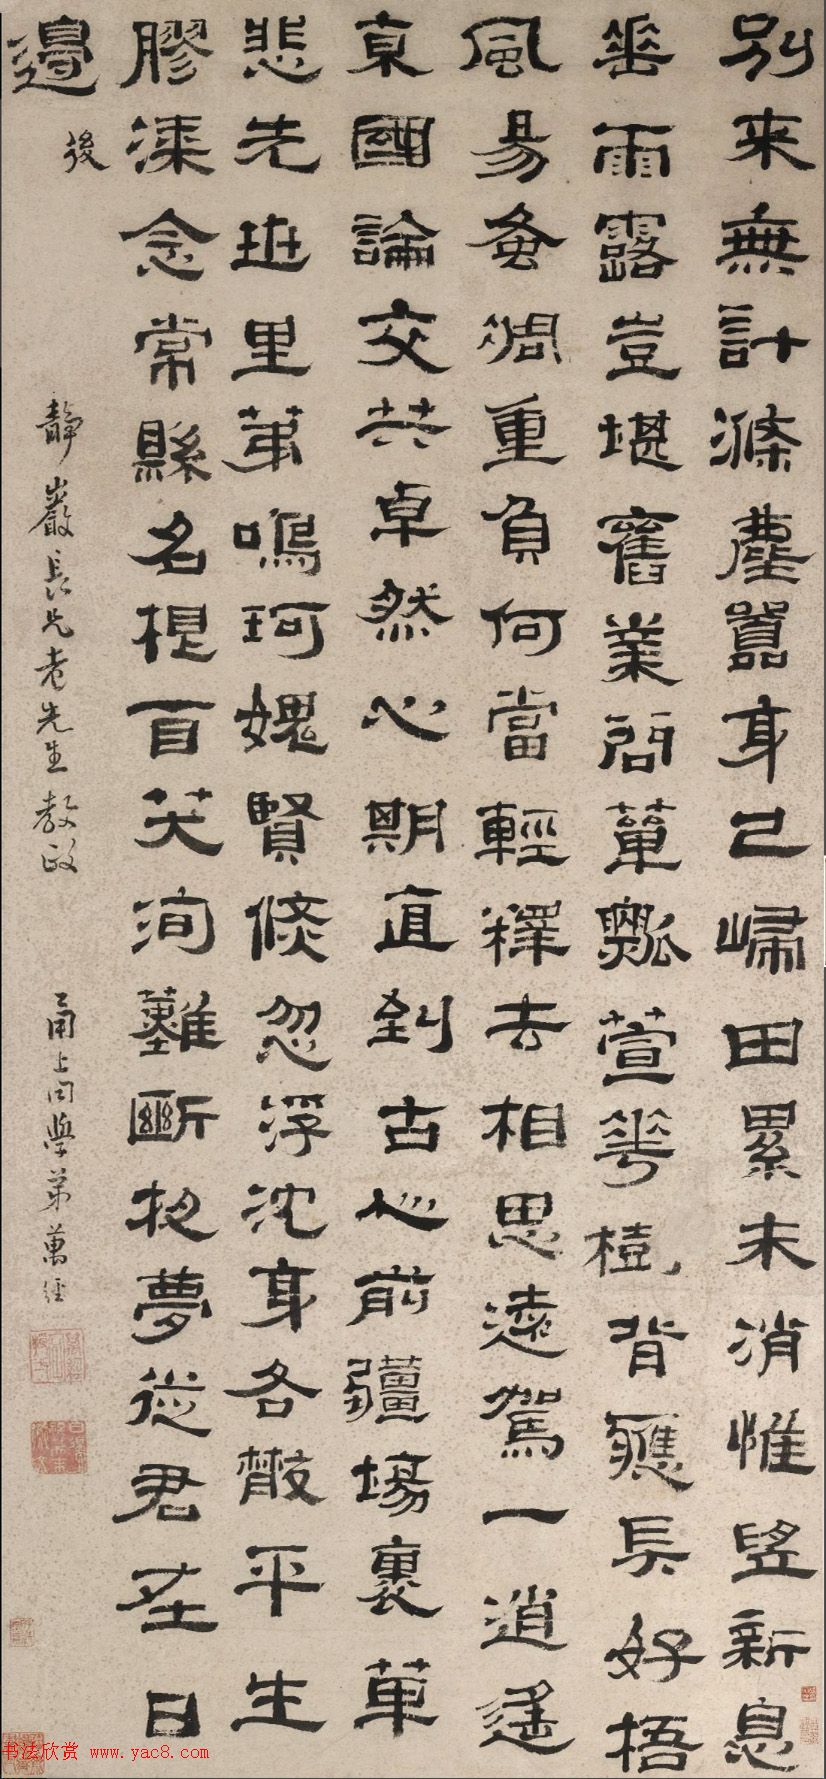 別來無計滌塵囂身已歸田累未消惟望新息
垂雨露豈堪舊業問簞瓢萱花樹背應長好梧
風易蚤凋重負何當輕釋去相思遠駕一逍遙
京國論交共卓然心期直到古心前疆場裹革
悲先進里第鳴珂媿賢倏忽浮沈身各散平生
膠漆念常縣名根自笑洵難斷夜夢從君在日
邊
後
靜巖長兄老先生教政 甬上同學弟萬經
书法欣赏 www.yac8.com